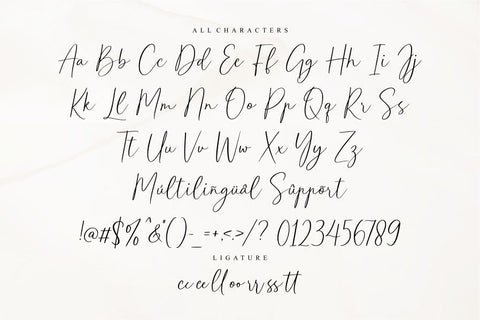 ALL CHARACTERS
Aa Bb Cc Dd Ee Ff Gg Hh Ii Jj
Kk Ll Mm Nn Oo Pp Qq Rr Ss
Tt Uu Vv Ww Xx Yy Zz
Múltilingüâl Sûppört
!@#$%^&()-_=+,<.>/? 0123456789
LIGATURE
cc ee ll oo rr ss tt